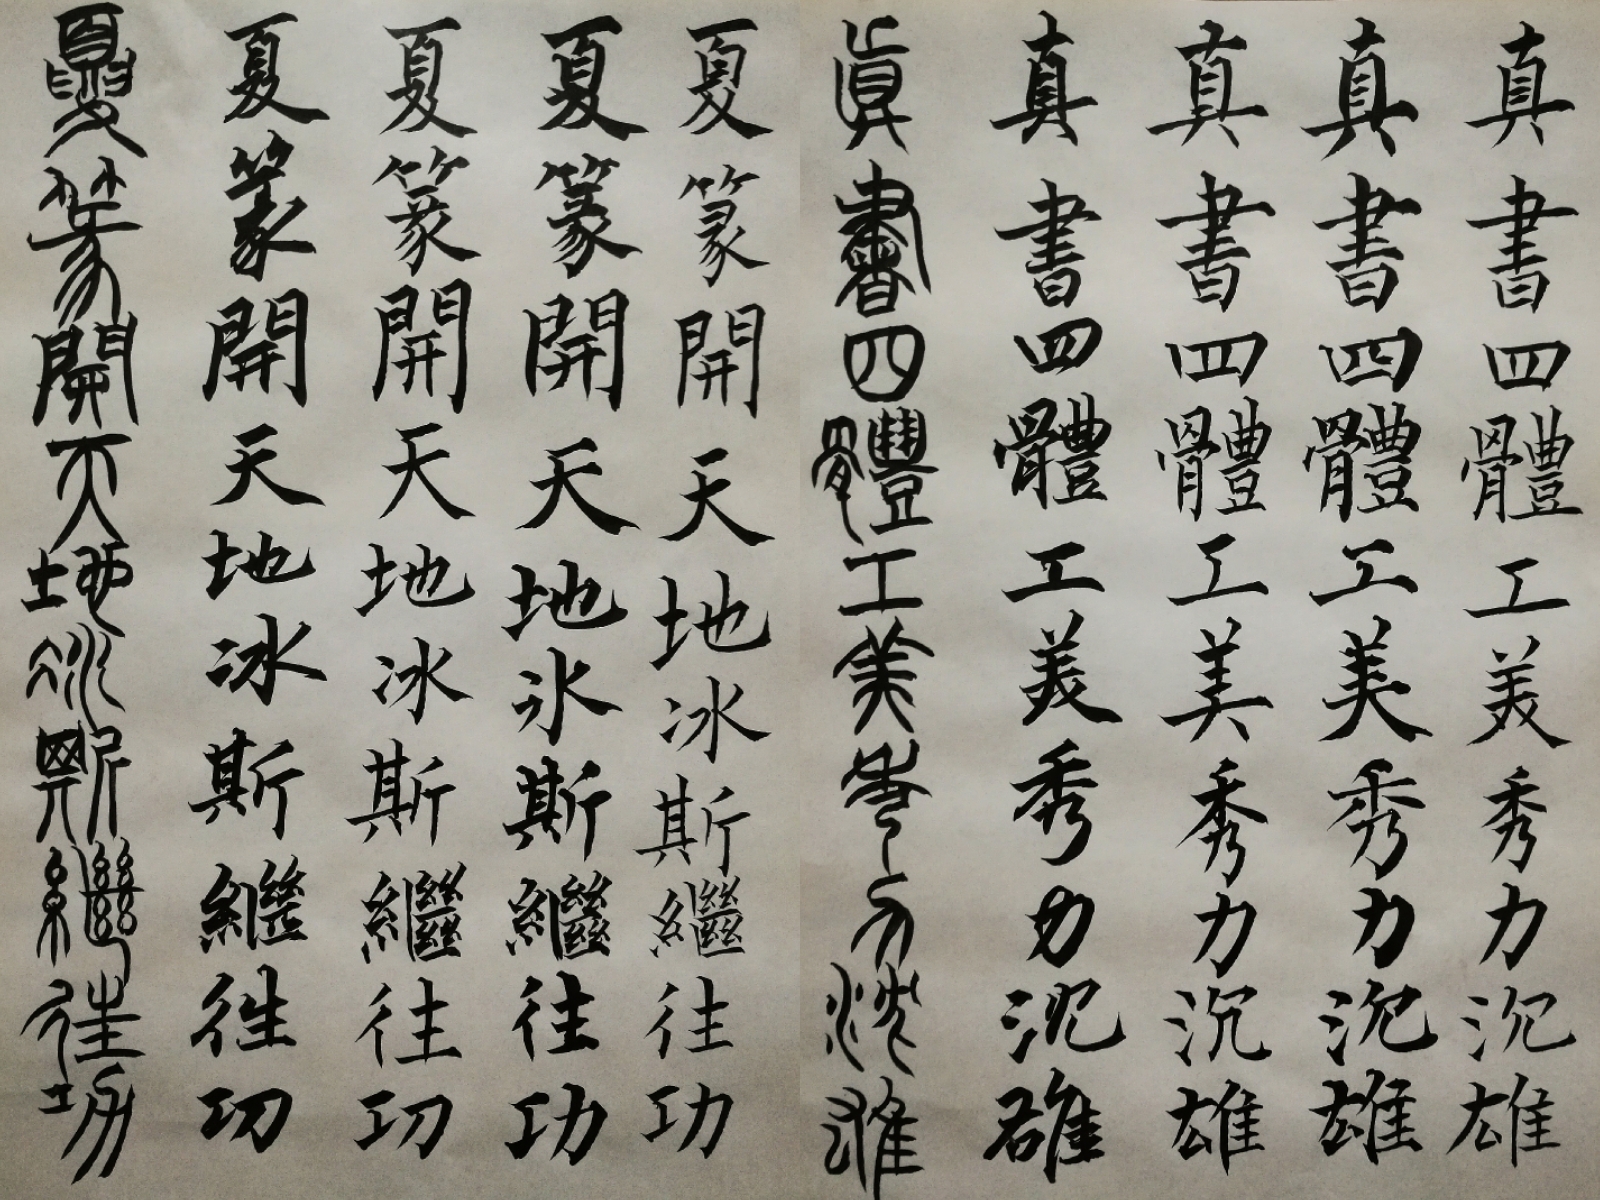 真書四體工美秀力沉雄
真書四體工美秀力沉雄
真書四體工美秀力沉雄
真書四體工美秀力沉雄
真書四體工美秀力沉雄
夏篆開天地冰斯繼往功
夏篆開天地冰斯繼往功
夏篆開天地冰斯繼往功
夏篆開天地冰斯繼往功
夏篆開天地冰斯繼往功